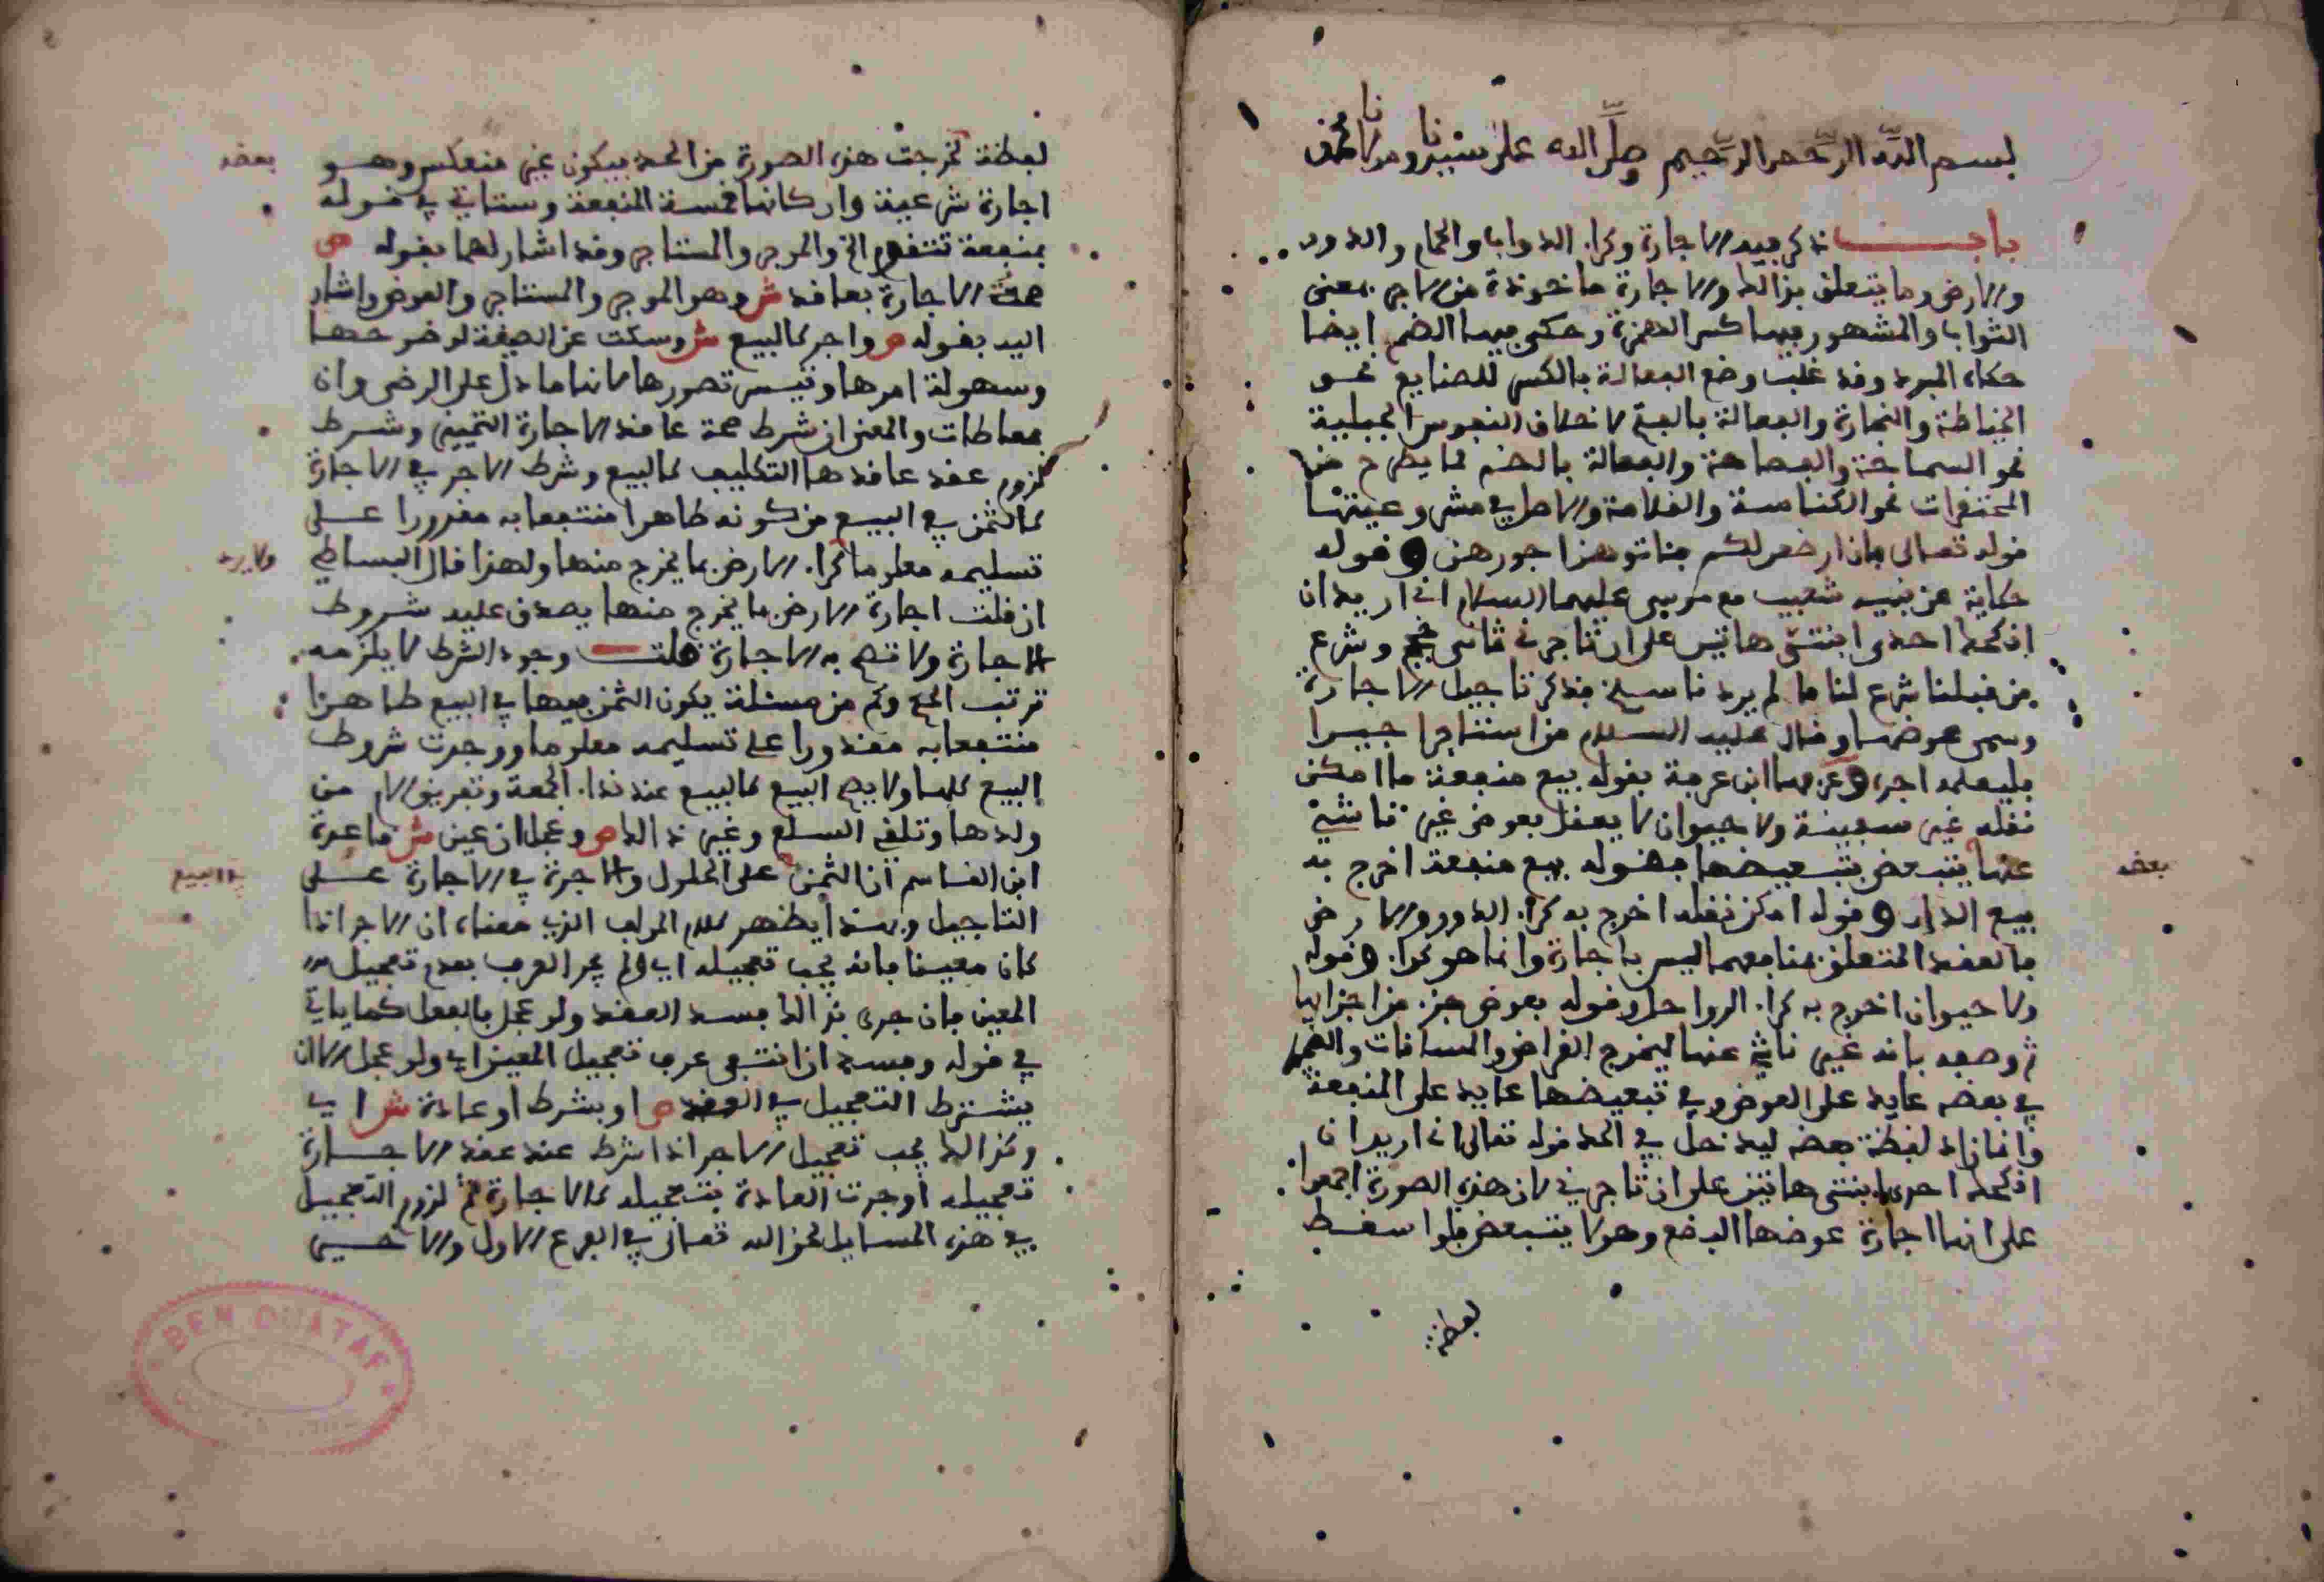 بسم الله الرحمن الرحيم صلى الله على سيدنا ومولانا محمد
باب ذكر فيه الاجارة وكراء الدواب والحمام والدور
والارض وما يتعلق بذالك والاجارة ماخوذة من الاجر بمعنى
الثواب والمشهور فيها كسر الهمزة وحكي فيها الضم ايضا
حكاه المبرد وقد غلب وضع الفعالة بالكسر للصنايع نحو
الخياطة والنجارة والفعالة بالفتح لاخلاق النفوس الجبلية
نحو السماحة والفصاحة والفعالة بالضم لما يطرح من
المحتقرات نحو الكناسة والقلامة والاصل في مشروعيتها
قوله تعالى فان ارضعن لكم فئاتوهن اجورهن وقوله
حكاية عن نبيه شعيب مع موسى عليهما السلام اني اريد ان
انكحك احدى ابنتي هاتين على ان تاجرني ثماني حجج وشرع
من قبلنا شرع لنا ما لم يرد ناسخ فذكر تاجيل الاجارة
وسمى عوضها وقال عليه السلام من استاجر اجيرا
فليعلمه اجره وعرفها ابن عرفة بقوله بيع منفعة ما امكن
نقله غير سفينة ولا حيوان لا يعقل بعوض غير ناشئ
عنها يتبعض بتبعيضها فقوله بيع منفعة اخرج به
بعضه
بيع الدار وقوله امكن نقله اخرج به كراء الدور والارض
فالعقد المتعلق بمنافعهما ليس باجارة وانما هو كراء وقوله
ولا حيوان اخرج به كراء الرواحل وقوله بعوض جزء من اجزائها
ووصفه بانه غير ناشئ عنها ليخرج القراض والمساقات والضمير
في بعضه عايد على العوض وفي تبعيضها عايد على المنفعة
وانما زاد لفظة بعضه ليدخل في الحد قوله تعالى اني اريد ان
انكحك احدى ابنتي هاتين على ان تاجرني لان هذه الصورة اجمعوا
على انها اجارة عوضها البضع وهو لا يتبعض فلو اسقط
لفظة
لفظة لخرجت هذه الصورة من الحد فيكون غير منعكس وهو
بعضه
اجارة شرعية واركانها خمسة المنفعة وستاتي في قوله
بمنفعة تتقوم الخ والموجر والمستاجر وقد اشار لهما بقوله ص
صحة الاجارة بعاقد ش وهو الموجر والمستاجر والعوض واشار
اليه بقوله ص واجر كالبيع ش وسكت عن الصيغة لوضوحها
وسهولة امرها وتيسر تصورها لانها ما دل على الرضى وان
بمعاطات والمعنى ان شرط صحة عاقد الاجارة التمييز وشرط
لزوم عقد عاقدها التكليف كالبيع وشرط الاجر في الاجارة
كالثمن في البيع من كونه طاهرا منتفعا به مقدورا على
تسليمه معلوما كراء الارض بما يخرج منها ولهذا قال البساطي
ولا يرد
ان قلت اجارة الارض بما يخرج منها يصدق عليه شروط
الاجارة ولا تصح به الاجارة قلت وجود الشرط لا يلزمه
ترتب الحكم وكم من مسئلة يكون الثمن فيها في البيع طاهرا
منتفعا به مقدورا على تسليمه معلوما ووجدت شروط
البيع كلها ولا يصح البيع كالبيع عند نداء الجمعة وتفريق الام من
ولدها وتلقي السلع وغير ذالك ص وعجل ان عين ش قاعدة
ابن القاسم ان الثمن على الحلول والاجرة في الاجارة على
في البيع
التاجيل وبهذا يظهر كلام المولف الذي معناه ان الاجر اذا
كان معينا فانه يجب تعجيله اي ولم يجر العرف بعدم تعجيل
المعين فان جرى بذالك فسد العقد ولو عجل بالفعل كما ياتي
في قوله وفسدت ان انتفى عرف تعجيل المعين اي ولو عجل الا ان
يشترط التعجيل في العقد ص او بشرط او عادة ش اي
وكذالك يجب تعجيل الاجر اذا شرط عند عقد الاجارة
تعجيله او جرت العادة بتعجيله كالاجارة ثم لزوم التعجيل
في هذه المسايل لحق الله تعالى في الفرع الاول والاخير
BEN OUATAF